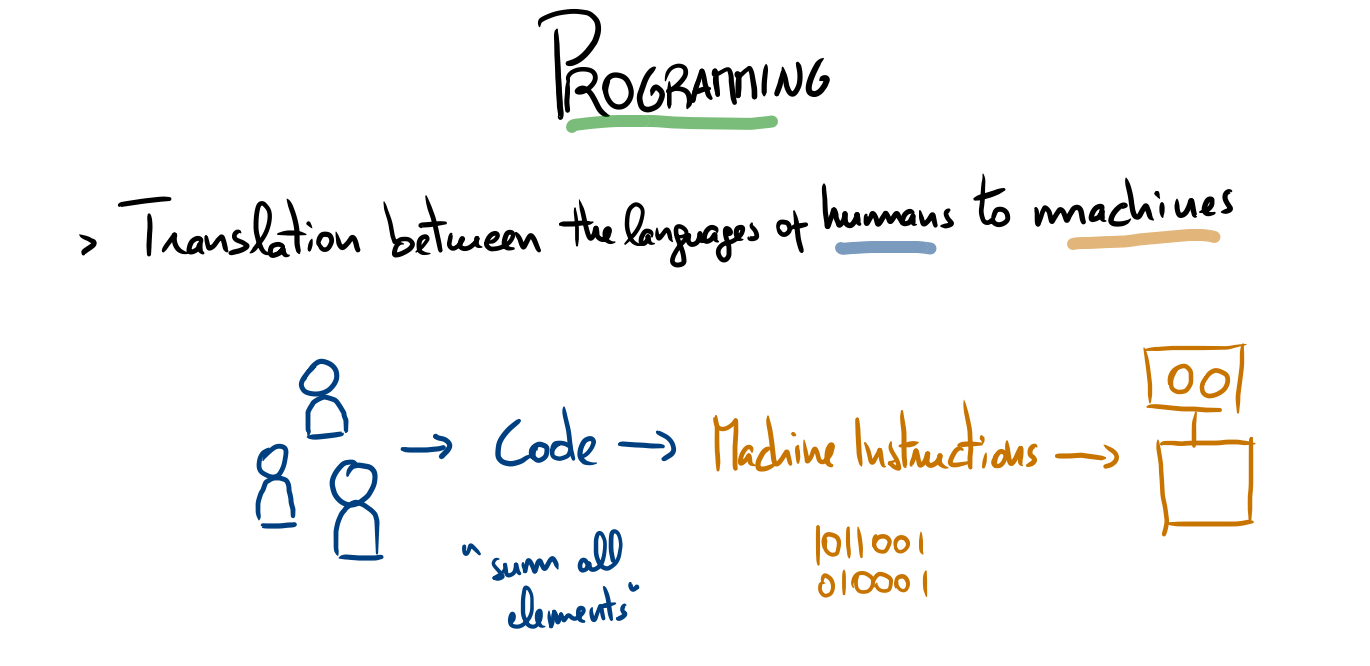 PROGRAMMING
> Translation between the languages of humans to machines
→ Code → Machine Instructions →
"sum all
elements"
1011001
010001